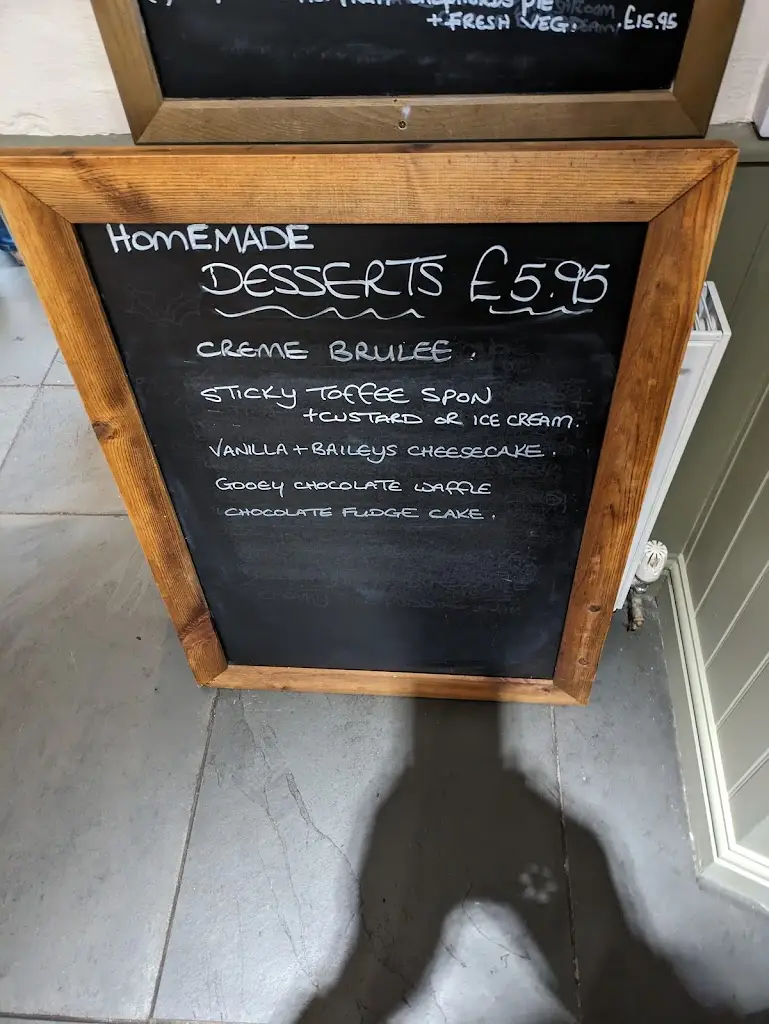 PIE
+ FRESH VEG. £15.95
HOMEMADE
DESSERTS £5.95
CREME BRULEE.
STICKY TOFFEE SPON
+CUSTARD OR ICE CREAM.
VANILLA + BAILEYS CHEESECAKE.
GOOEY CHOCOLATE WAFFLE
CHOCOLATE FUDGE CAKE.